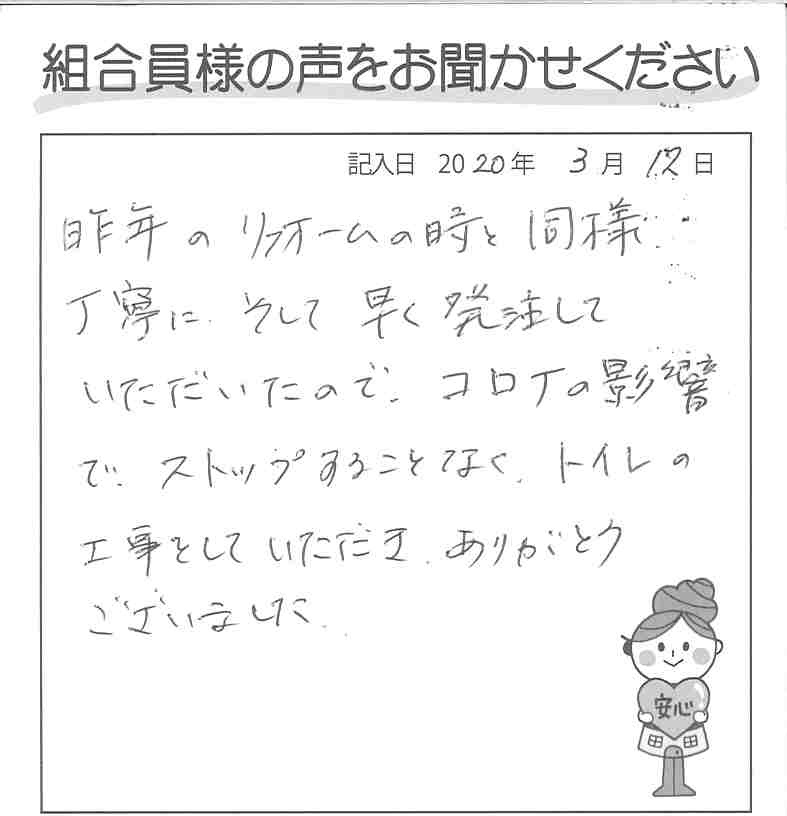 組合員様の声をお聞かせください
記入日 2020年 3月 12日
昨年のリフォームの時と同様
丁寧に、そして早く発注して
いただいたので、コロナの影響
で、ストップすることなく、トイレの
工事をしていただき、ありがとう
ございました。
安心